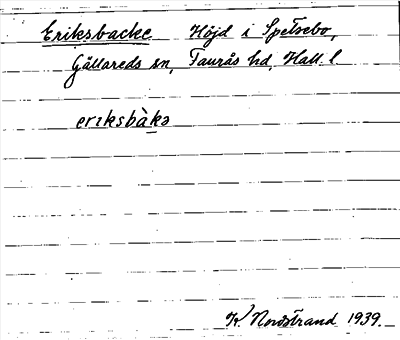 Eriksbacke Höjd i Spetsebo,
Gällareds sn, Faurås hd, Hall. l.
eriksbàkə
K. Nordstrand 1939.